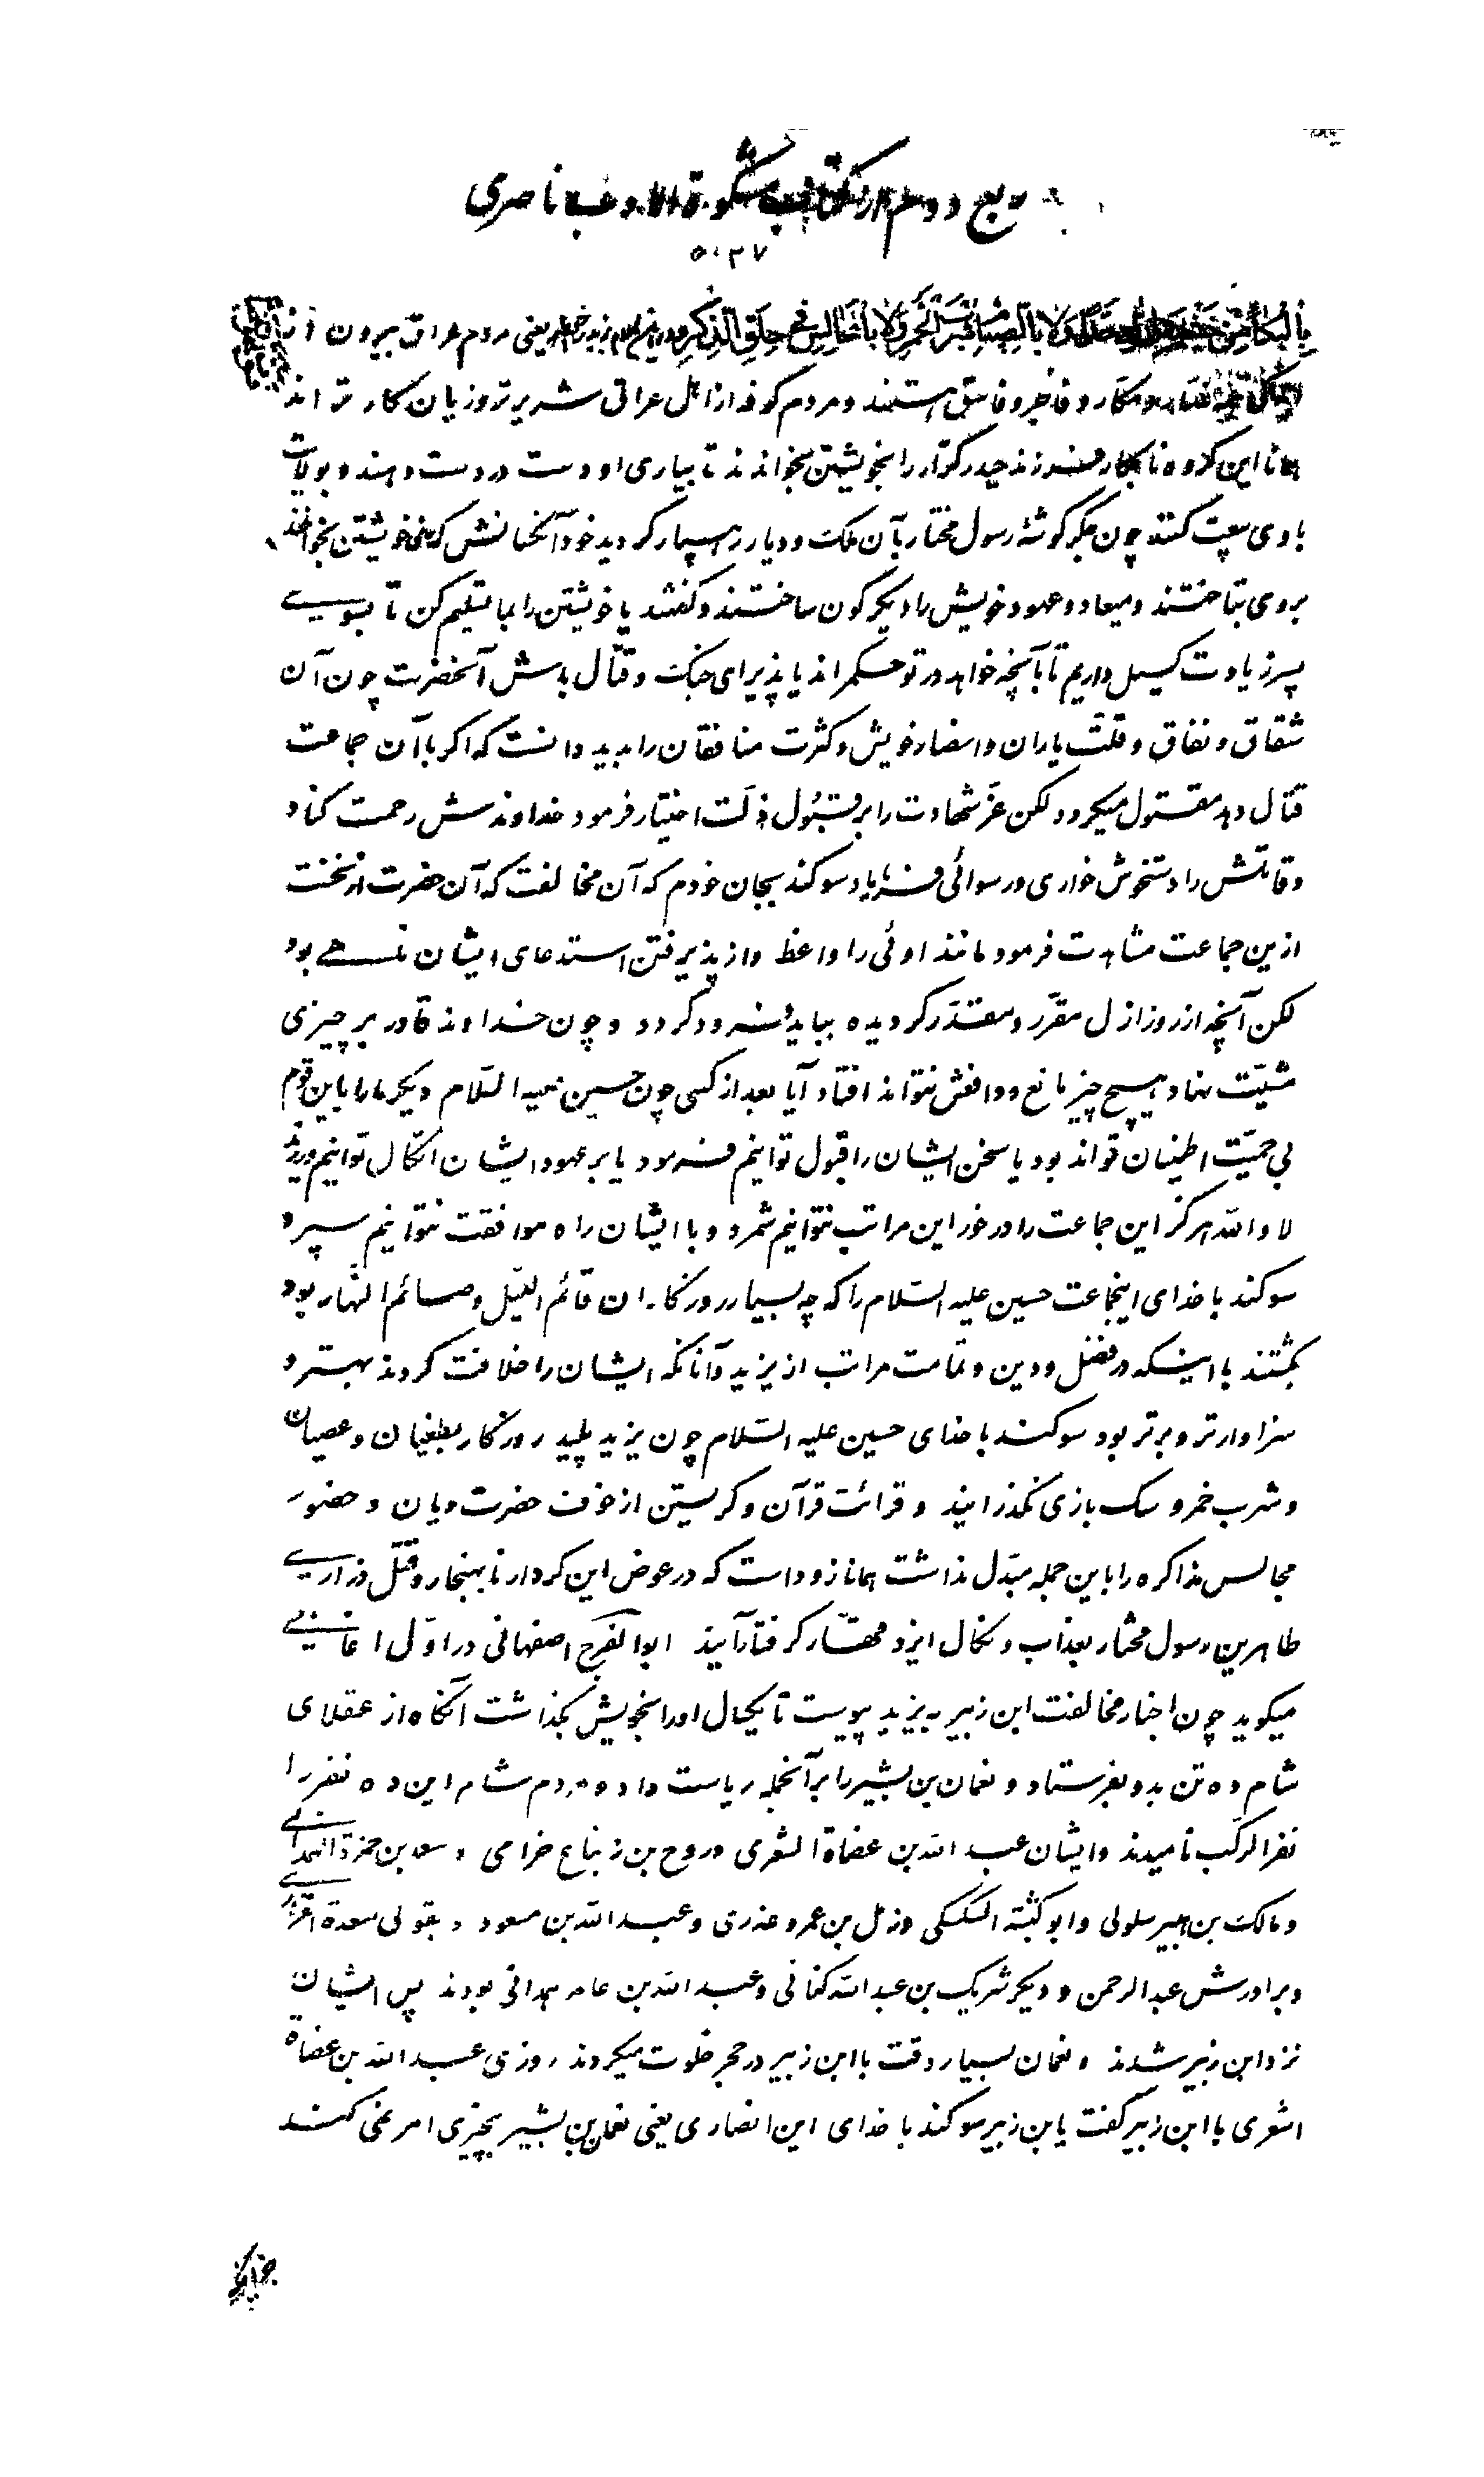 ربع دوم از کتاب مشکوة الادب ناصری
۵۰۲۷
بِالبُکاءِ مِن خَشیَةِ اللهِ وَلا بِالصِّیامِ شُربَ الخَمرِ وَلا بِالمَجالِسِ فی حِلَقِ الذِّکرِ یعنی مردم عراق بیرون از
غدار و مکار و فاجر و فاسق هستند و مردم کوفه از اهل عراق شریرتر و زیان کارتر اند
همانا این کروه نابکار فرزند حیدر کرّار را بخویشتن بخواندند تا بیاری او دست در دست دهند و بولایت
با وی بیعت کنند چون جگر کوشهٔ رسول مختار بآن ملک و دیار رهسپار کردید خود آنکسانش که بخویشتن بخواندند
بروی بتاختند و میعاد و عهود خویش را دیکرکون ساختند و کفتند یا خویشتن را بما تسلیم کن تا بسوی
پسر زیادت کسیل داریم تا بآنچه خواهد در تو حکمراند یا پذیرای جنک و قتال باش آنحضرت چون آن
شقاق و نفاق و قلّت یاران و انصار خویش و کثرت منافقان را بدید دانست که اکر با آن جماعت
قتال دهد مقتول میکردد لکن عزّ شهادت را بر قبول ذلّت اختیار فرمود خداوندش رحمت کناد
و قاتلش را دستخوش خواری و رسوائی فرمایاد سوکند بجان خودم که آن مخالفت که آن حضرت از نخست
ازین جماعت مشاهدت فرمود مانند اوئی را واعظ و از پذیرفتن استدعای ایشان ناهی بود
لکن آنچه از روز ازل مقرّر و مقدّر کردیده بباید فرود کردد و چون خداوند قادر بر چیزی
مشیّت نهاد هیچ چیز مانع و دافعش نتواند افتاد آیا بعد از کسی چون حسین علیه السّلام دیکر ما را باین قوم
بی حمیّت اطمینان تواند بود یا سخن ایشان را قبول توانیم فرمود یا بر عهود ایشان اتّکال توانیم ورزید
لا والله هرکز این جماعت را در خور این مراتب نتوانیم شمرد و با ایشان راه موافقت نتوانیم سپرد
سوکند با خدای اینجماعت حسین علیه السّلام را که چه بسیار روزکاران قائم اللیل و صائم النّهار بود
بکشتند با اینکه در فضل و دین و تمامت مراتب از یزید و آنانکه ایشان را خلافت کردند بهتر و
سزاوارتر و برتر بود سوکند با خدای حسین علیه السّلام چون یزید پلید روزکار بطغیان و عصیان
و شرب خمر و سک بازی نگذرانید و قرائت قرآن و کریستن از خوف حضرت دیان و حضور
مجالس مذاکره را باین جمله مبدّل نداشت همانا زود است که در عوض این کردار نابهنجار و قتل ذراری
طاهرین رسول مختار بعذاب و نکال ایزد قهّار کرفتار آیند ابوالفرج اصفهانی در اوّل اغانی
میکوید چون اخبار مخالفت ابن زبیر بیزید پیوست تا یکسال او را بخویش بگذاشت آنکاه از عقلای
شام ده تن بدو بفرستاد و نعمان بن بشیر را بر آنجمله ریاست داد و مردم شام این ده نفر را
نفر الرکب نامیدند و ایشان عبدالله بن عضاة اشعری و روح بن زنباع خزامی و سعد بن حمزة الهمدانی
و مالک بن هبیر سلولی و ابو کبشة السکسکی و زمل بن عمرو عذری و عبدالله بن مسعود و بقولی مسعدة الفزاری
و برادرش عبدالرحمن و دیکر شریک بن عبدالله کنانی و عبدالله بن عامر همدانی بودند پس ایشان
نزد ابن زبیر شدند و نعمان بسیار وقت با ابن زبیر در حجر خلوت میکردند روزی عبدالله بن عضاة
اشعری با ابن زبیر کفت یابن زبیر سوکند با خدای این انصاری یعنی نعمان بن بشیر بچیزی امر نمی کند